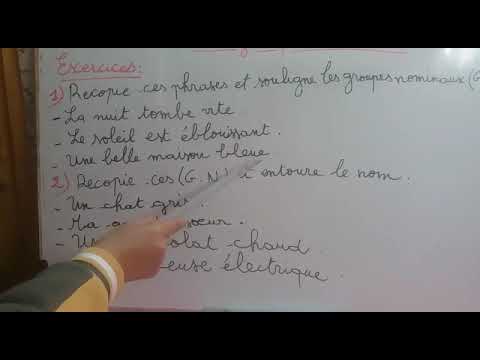 Exercices:
1) Recopie ces phrases et souligne les groupes nominaux (G
- La nuit tombe vite.
- Le soleil est éblouissant.
- Une belle maison bleue
2) Recopie ces (G.N) entoure le nom.
- Un chat gris.
- Ma soeur.
- chaud.
électrique.